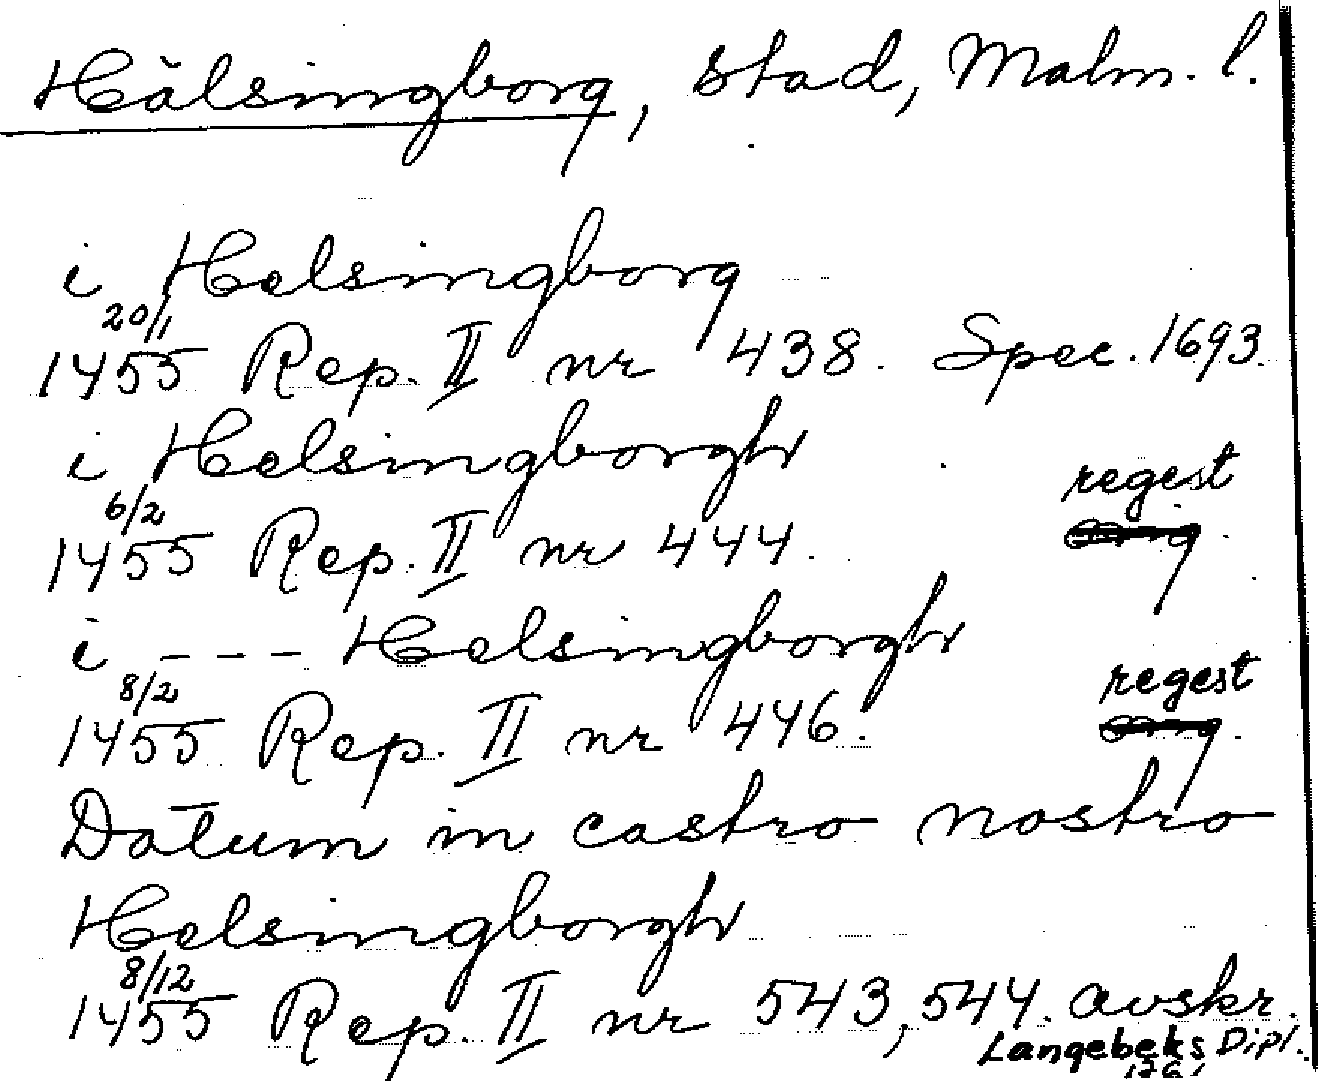 Hälsingborg, stad, Malm. l.
i Helsingborg
20/1
1455 Rep. II nr 438. Spec. 1693.
i Helsingborgh
regest
6/2
1455 Rep. II nr 444.
i --- Helsingborgh
regest
8/2
1455 Rep. II nr 446.
Datum in castro nostro
Helsingborgh
8/12
1455 Rep. II nr 543, 544. avskr.
Langebeks Dipl.